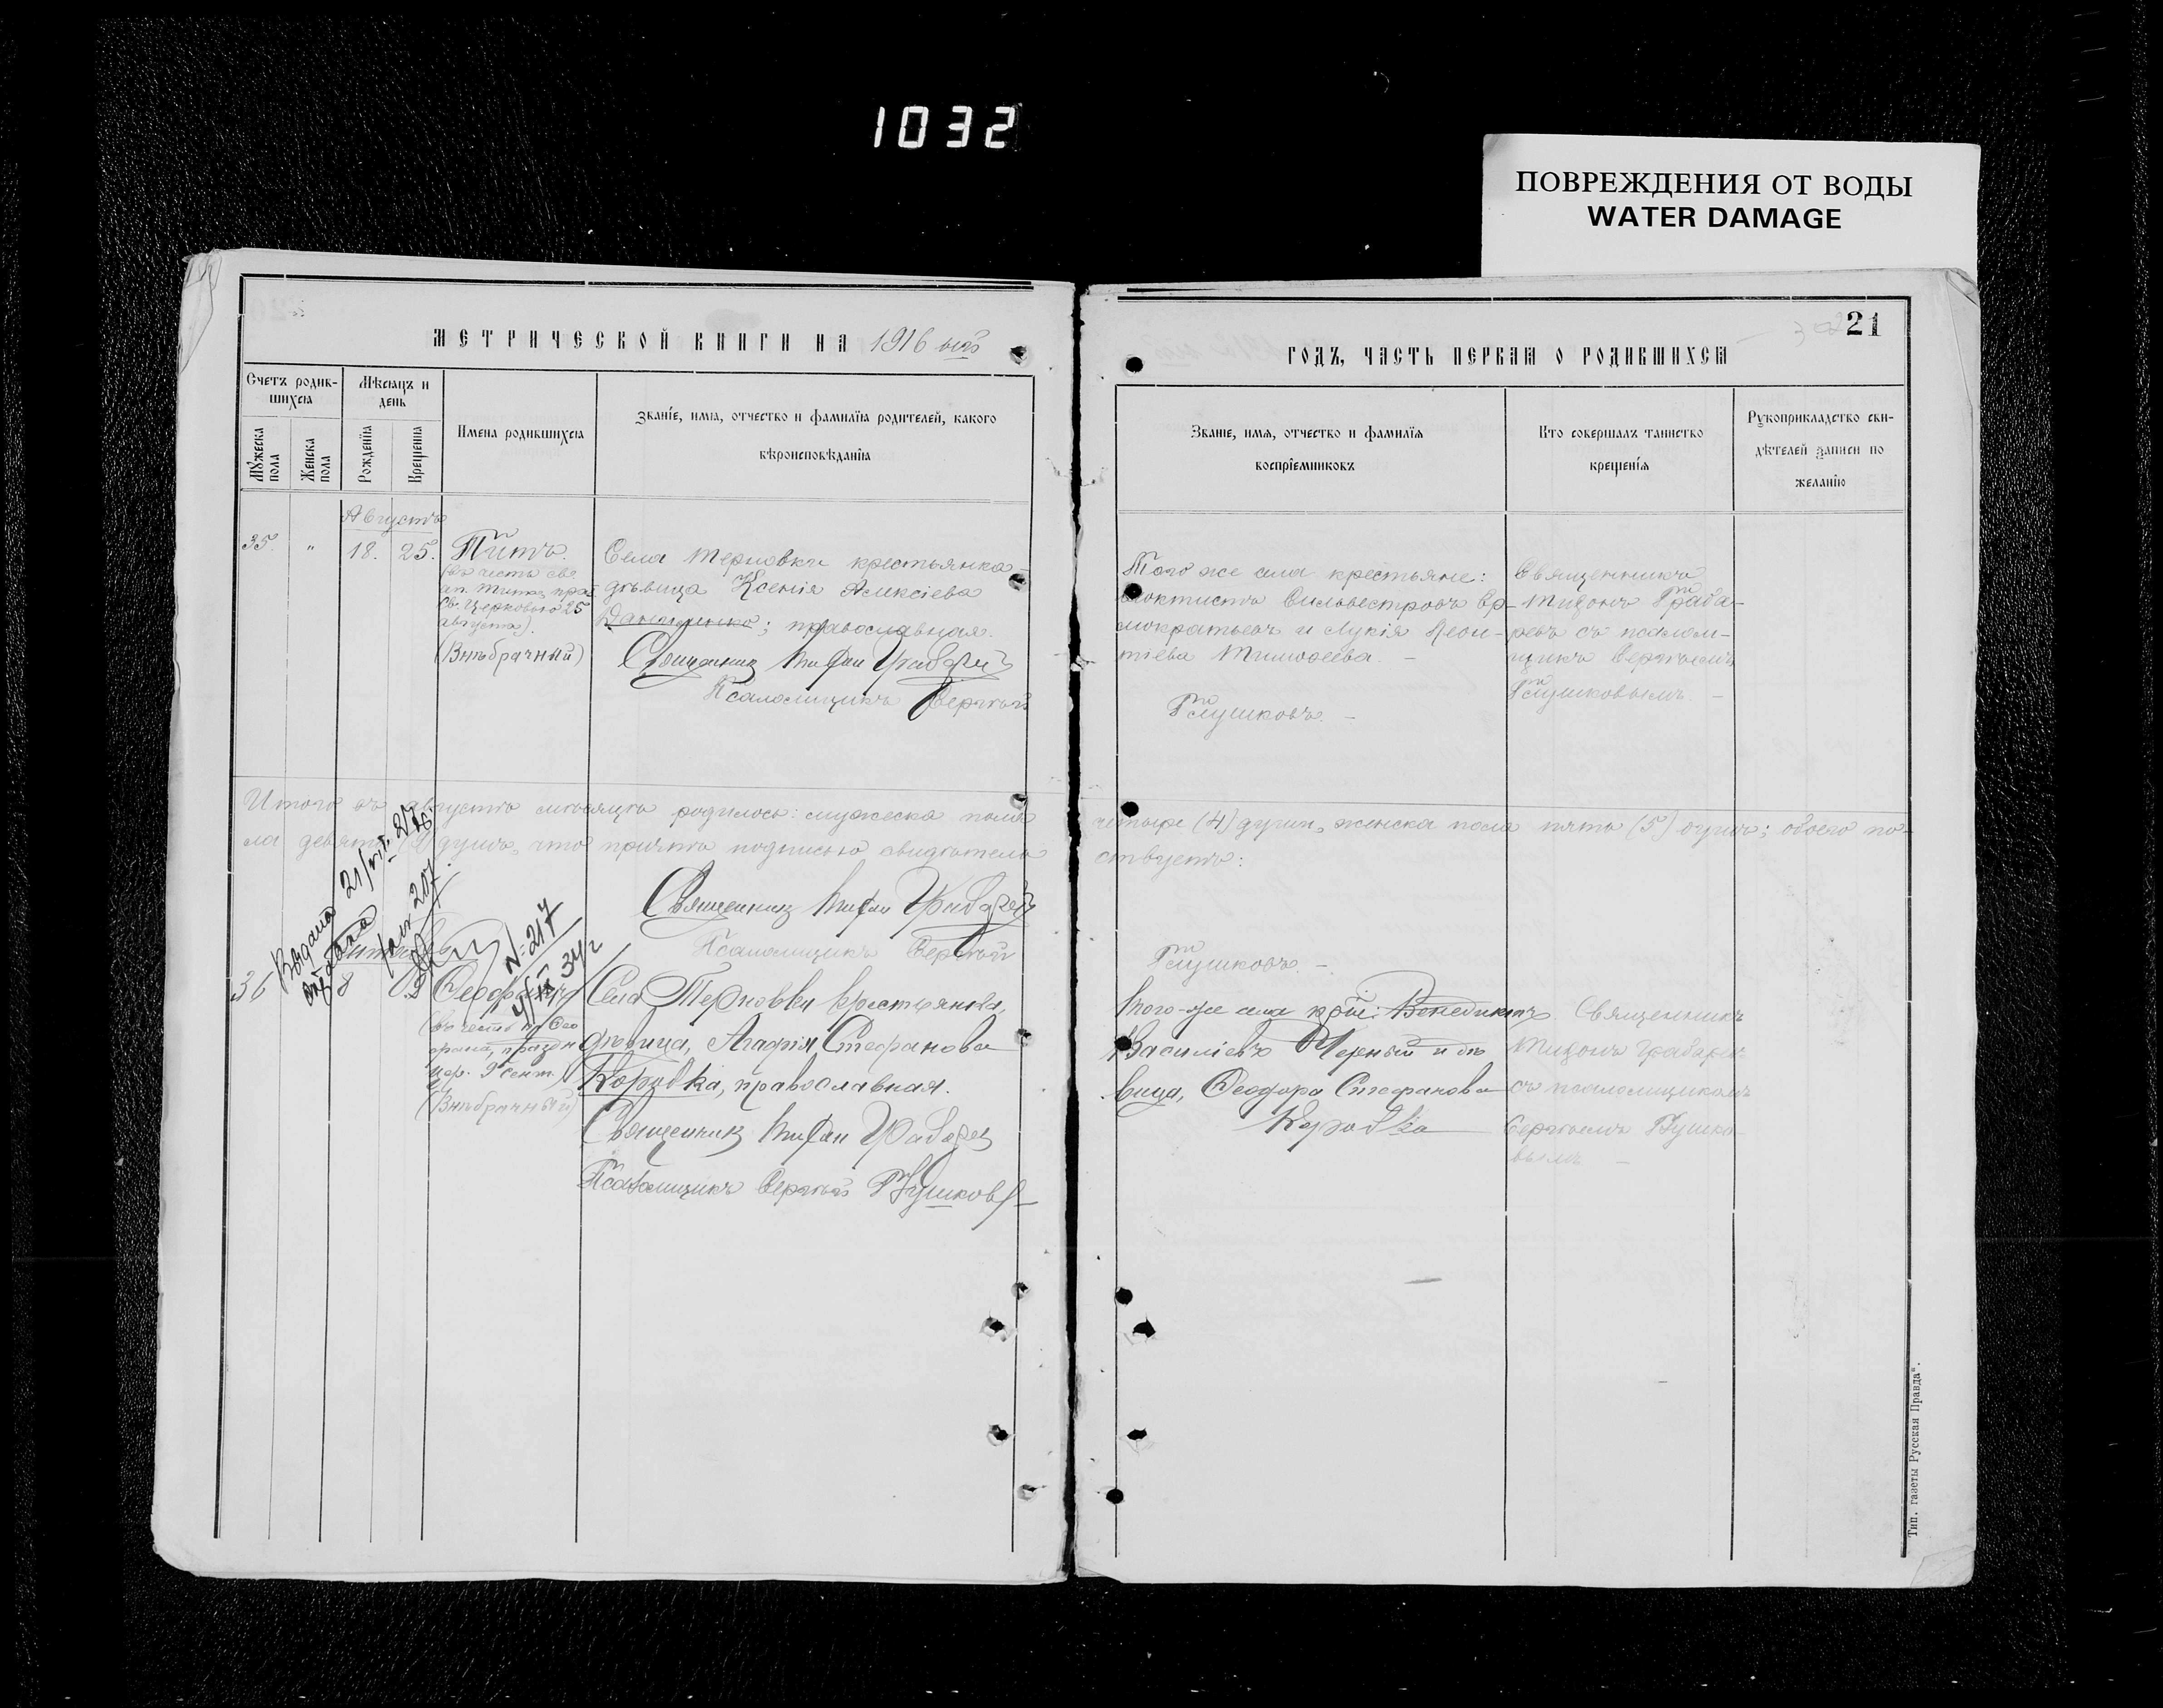 1032
ПОВРЕЖДЕНИЯ ОТ ВОДЫ
WATER DAMAGE
МЕТРИЧЕСКОЙ КНИГИ НА 1916 ый
Счетъ родив-
шихся
Мѣсяцъ и
день
Мужеска
пола
Женска
пола
Рожденїя
Крещенїя
Имена родившихся
Званїе, имя, отчество и фамилїя родителей, какого
вѣроисповѣданїя
Августъ
35. " 18. 25. Титъ.
(въ честь св.
ап. Тита, праз.
Св. Церковью 25
августа).
(Внѣбрачный)
Села Терновки крестьянка-
дѣвица Ксенія Алексіева
православная.
Священникъ Тихон Грабарев
Псаломщикъ Сергѣй
Итого въ августѣ мѣсяцѣ родилось: мужеска пола
ла девять (9) душъ, что причтъ подписью свидѣтель
Священникъ Тихон Грабаревъ
Псаломщикъ Сергѣй
Выдана 21/
№ 217
34 г
36 8 9 Феофанъ
(въ честь пр. Фео
фана, праздн.
цер. 9 сент.)
(Внѣбрачный)
Села Терновки крестьянка,
дѣвица, Агафія Стефанова
Коровка, православная.
Священникъ Тихон Грабарев
Псаломщикъ Сергѣй Глушковъ
21
ГОДЪ, ЧАСТЬ ПЕРВАЯ О РОДИВШИХСЯ
Званїе, имя, отчество и фамилїя
воспрїемниковъ
Кто совершалъ таинство
крещенїя
Рукоприкладство сви-
дѣтелей записи по
желанїю
Того же села крестьяне:
Ѳеоктистъ Сильвестровъ Ер-
мократьевъ и Лукія Леон-
тіева Тимоѳеева. -
Глушковъ. -
Священникъ
Тихонъ Граба-
ревъ съ псалом-
щикъ Сергѣемъ
Глушковымъ. -
четыре (4) души, женска пола пять (5) душъ; обоего по-
ствуетъ:
Глушковъ. -
того-же села крест: Венедиктъ
Василіевъ Черный и дѣ
вица, Феодора Стефанова
Коровка
Священникъ
Тихонъ Грабарев
съ псаломщикомъ
Сергѣемъ Глушко
вымъ -
Тип. газеты Русская Правда".